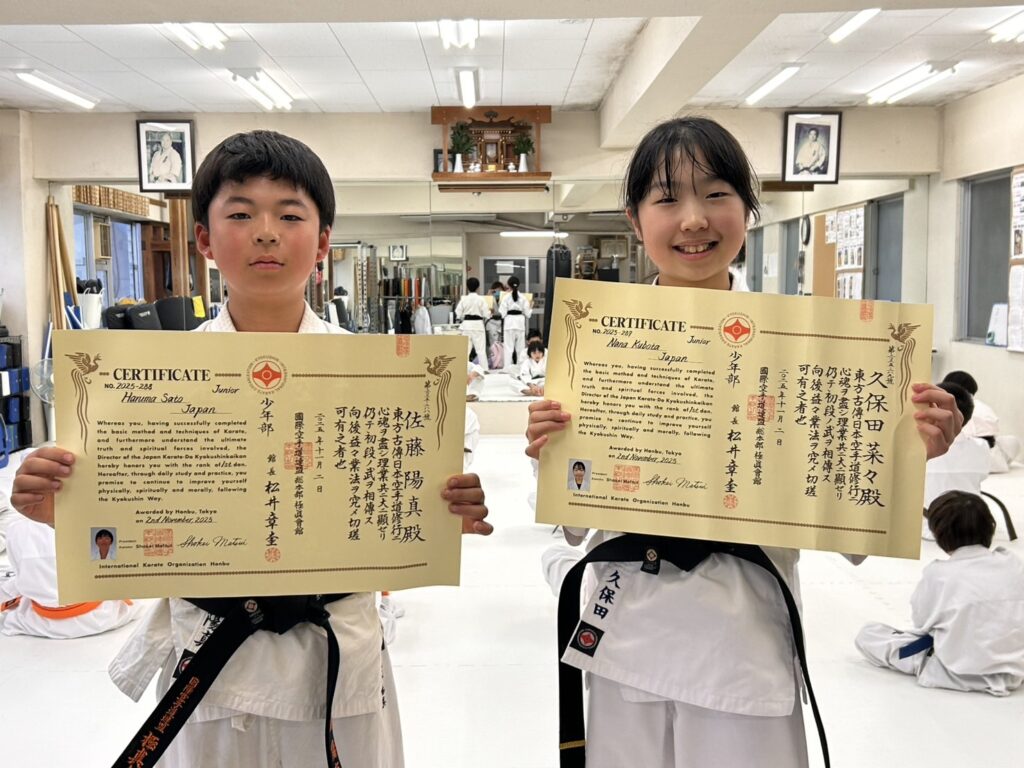 CERTIFICATE
NO. 2025-288
Junior
Haruma Sato
Japan
Whereas you, having successfully completed
the basic method and techniques of Karate,
and furthermore understand the ultimate
truth and spiritual forces involved, the
Director of the Japan Karate-Do Kyokushinkaikan
hereby honors you with the rank of 1st dan.
Hereafter, through daily study and practice, you
promise to continue to improve yourself
physically, spiritually and morally, following
the Kyokushin Way.
Awarded by Honbu, Tokyo
on 2nd November, 2025
President
Shokei Matsui
Shokei Matsui
International Karate Organization Honbu
佐藤陽真殿
東方古傳日本空手道修行ニ
心魂ヲ盡シ理業共ニ大ニ顯ゼリ
仍テ初段ノ武ヲ相傳ス
向後益々業法ヲ究メ切瑳
可有之者也
二〇二五年十一月二日
國際空手道連盟総本部極眞會館
館長 松井章奎
少年部
CERTIFICATE
NO. 2025-289
Junior
Nana Kubota
Japan
Whereas you, having successfully completed
the basic method and techniques of Karate,
and furthermore understand the ultimate
truth and spiritual forces involved, the
Director of the Japan Karate-Do Kyokushinkaikan
hereby honors you with the rank of 1st dan.
Hereafter, through daily study and practice, you
promise to continue to improve yourself
physically, spiritually and morally, following
the Kyokushin Way.
Awarded by Honbu, Tokyo
on 2nd November, 2025
President
Shokei Matsui
Shokei Matsui
International Karate Organization Honbu
久保田菜々殿
東方古傳日本空手道修行ニ
心魂ヲ盡シ理業共ニ大ニ顯ゼリ
仍テ初段ノ武ヲ相傳ス
向後益々業法ヲ究メ切瑳
可有之者也
國際空手道連盟総本部極眞會館
館長 松井章奎
少年部
久保田